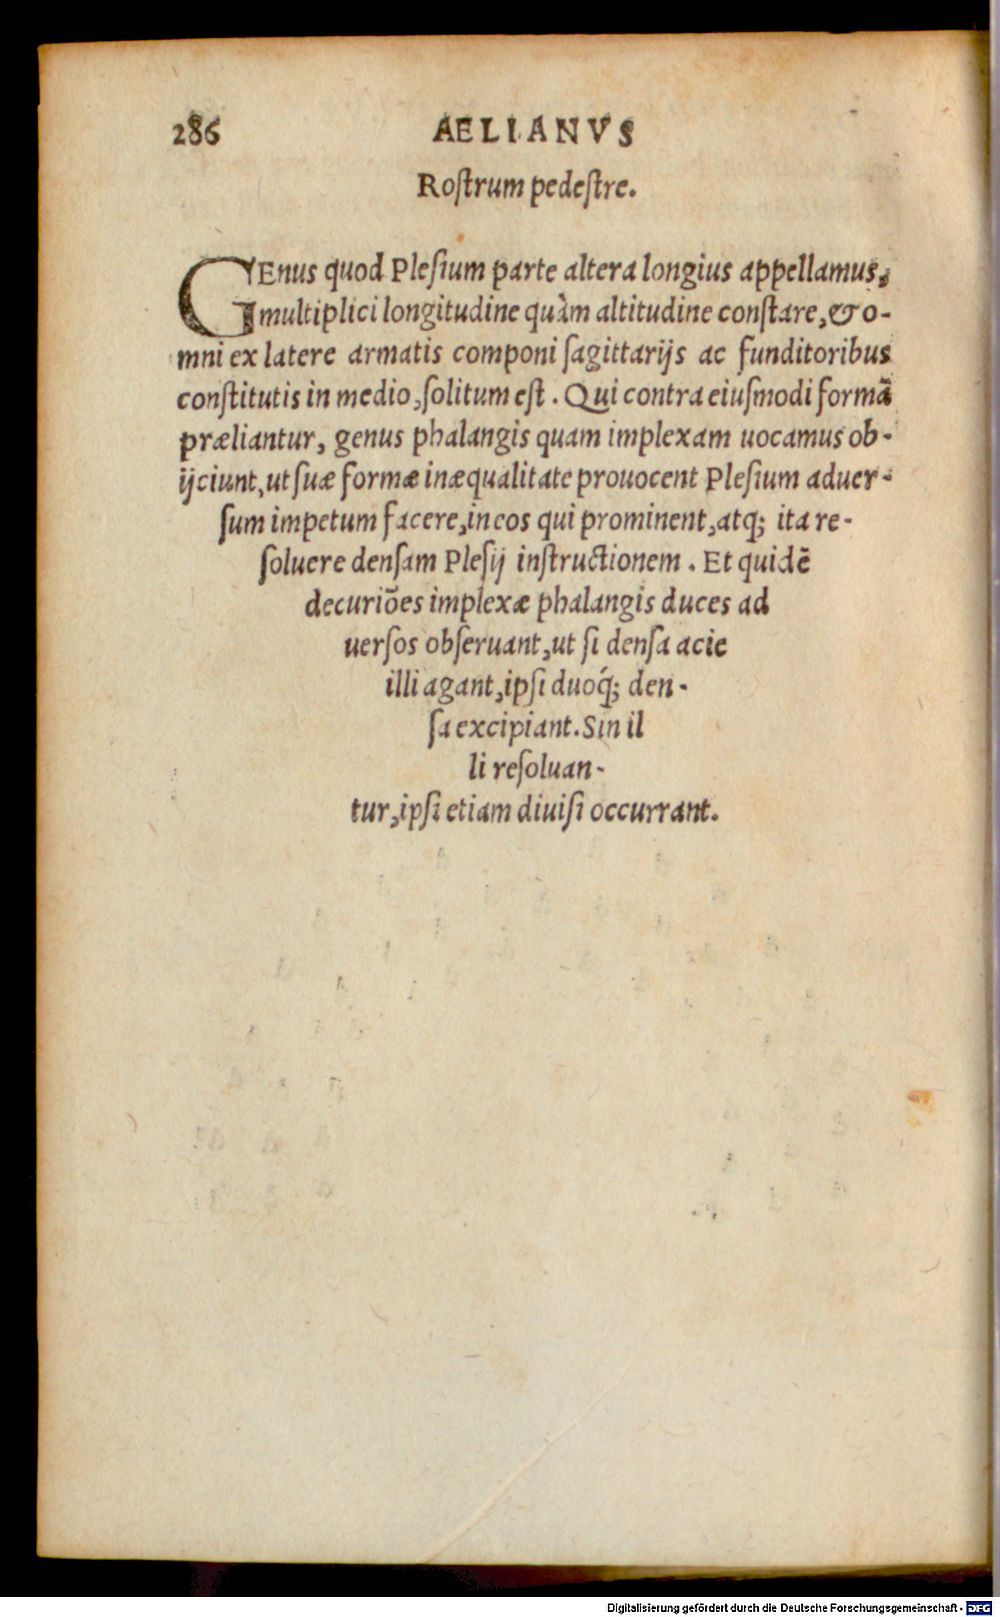 286 AELIANVS
Roſtrum pedeſtre.
GEnus quod Pleſium parte altera longius appellamus,
multiplici longitudine quàm altitudine conſtare, & o-
mni ex latere armatis componi ſagittarijs ac funditoribus
conſtitutis in medio, ſolitum eſt. Qui contra eiuſmodi formā
præliantur, genus phalangis quam implexam uocamus ob-
ijciunt, ut ſuæ formæ inæqualitate prouocent Pleſium aduer-
ſum impetum facere, in eos qui prominent, atq; ita re-
ſoluere denſam Pleſij inſtructionem. Et quidē
decuriões implexæ phalangis duces ad
uerſos obſeruant, ut ſi denſa acie
illi agant, ipſi duoq́; den-
ſa excipiant. Sin il
li reſoluan-
tur, ipſi etiam diuiſi occurrant.
Digitalisierung gefördert durch die Deutsche Forschungsgemeinschaft - DFG